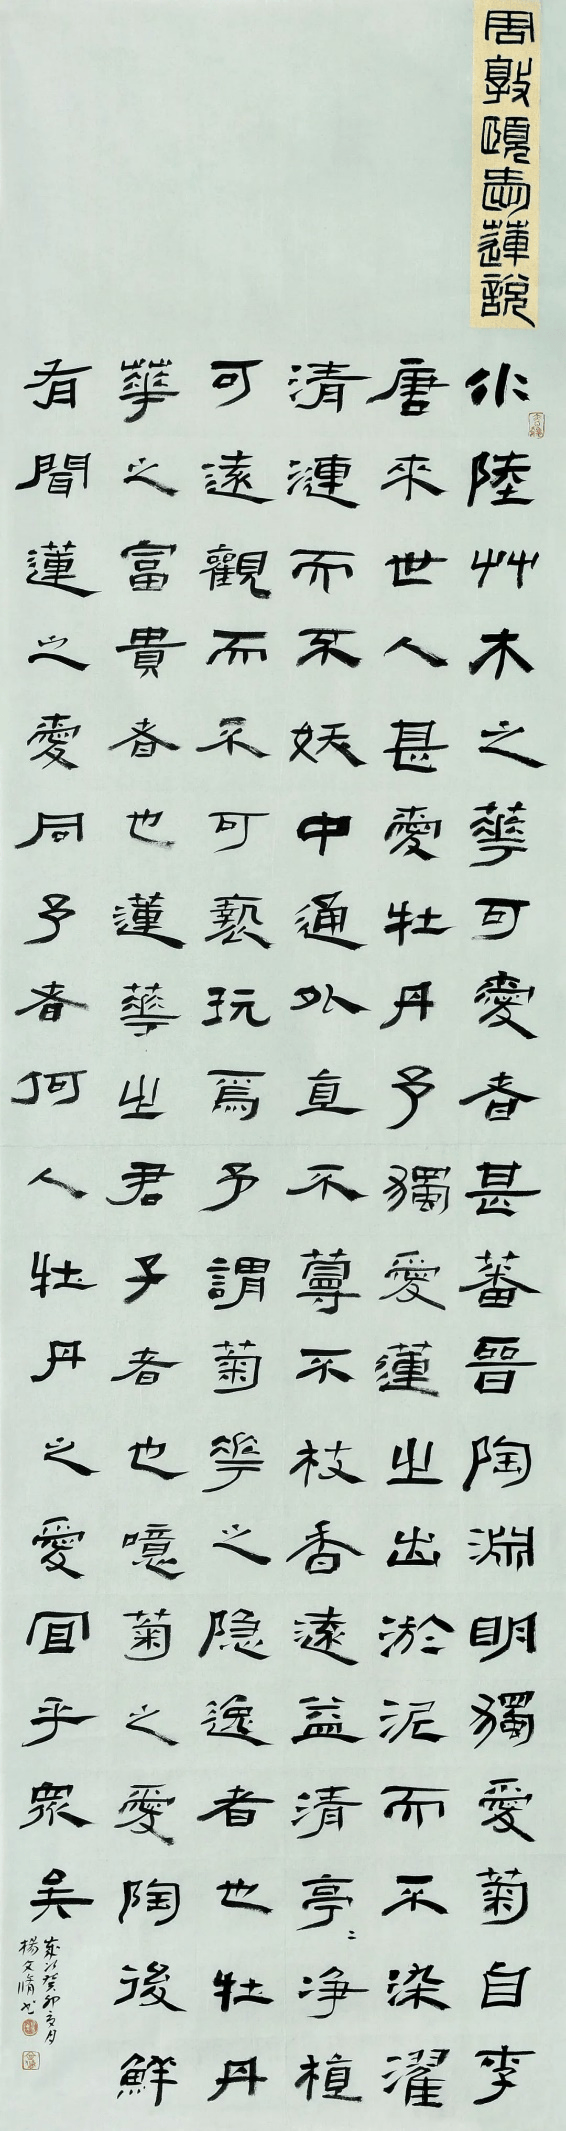 周敦頤愛蓮說
水陸艸木之華可愛者甚蕃晉陶淵明獨愛菊自李
唐來世人甚愛牡丹予獨愛蓮之出淤泥而不染濯
清漣而不妖中通外直不蔓不枝香遠益清亭〻净植
可遠觀而不可褻玩焉予謂菊華之隐逸者也牡丹
華之富貴者也蓮華之君子者也噫菊之愛陶後鮮
有聞蓮之愛同予者何人牡丹之愛宜乎衆矣
歲次癸卯夏月
楊文脩书